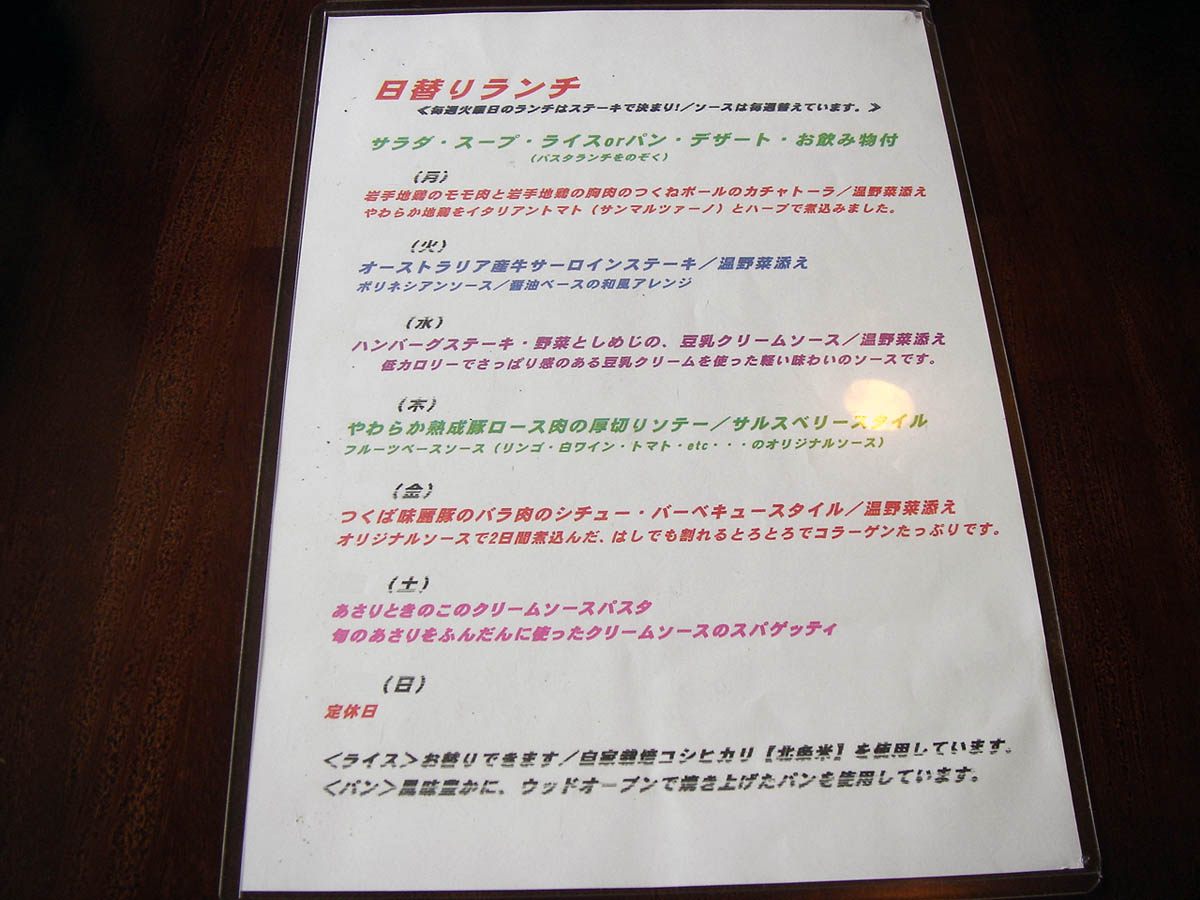 日替りランチ
≪毎週火曜日のランチはステーキで決まり!／ソースは毎週替えています。≫
サラダ・スープ・ライスorパン・デザート・お飲み物付
（パスタランチをのぞく）
（月）
岩手地鶏のモモ肉と岩手地鶏の胸肉のつくねボールのカチャトーラ／温野菜添え
やわらか地鶏をイタリアントマト（サンマルツァーノ）とハーブで煮込みました。
（火）
オーストラリア産牛サーロインステーキ／温野菜添え
ポリネシアンソース／醤油ベースの和風アレンジ
（水）
ハンバーグステーキ・野菜としめじの、豆乳クリームソース／温野菜添え
低カロリーでさっぱり感のある豆乳クリームを使った軽い味わいのソースです。
（木）
やわらか熟成豚ロース肉の厚切りソテー／サルスベリースタイル
フルーツベースソース（リンゴ・白ワイン・トマト・etc・・・のオリジナルソース）
（金）
つくば味麗豚のバラ肉のシチュー・バーベキュースタイル／温野菜添え
オリジナルソースで2日間煮込んだ、はしでも割れるとろとろでコラーゲンたっぷりです。
（土）
あさりときのこのクリームソースパスタ
旬のあさりをふんだんに使ったクリームソースのスパゲッティ
（日）
定休日
＜ライス＞お替りできます／自家栽培コシヒカリ【北条米】を使用しています。
＜パン＞風味豊かに、ウッドオーブンで焼き上げたパンを使用しています。